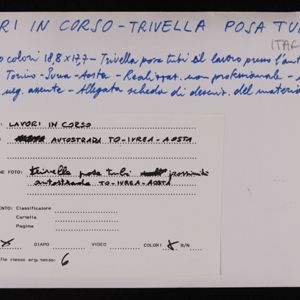 RI IN CORSO - TRIVELLA POSA TU
ITAL
o colori 18,8 x 17,7 - Trivella posa tubi al lavoro presso l'aut
Torino - Ivrea - Aosta - Realizzaz. non professionale -
neg. assente - Allegata scheda di descriz. del materia
LAVORI IN CORSO
AUTOSTRADA TO-IVREA-AOSTA
NE FOTO: trivella posa tubi prossimità
autostrada TO-IVREA-AOSTA
ENTO: Classificatore
Cartella
Pagina
DIAPO VIDEO COLORI X B/N
lle stesso argomento: 6